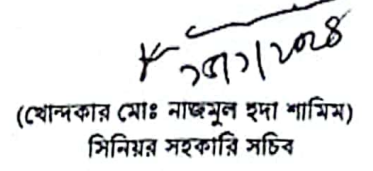 (খোন্দকার মোঃ নাজমুল হুদা শামিম)
সিনিয়র সহকারি সচিব